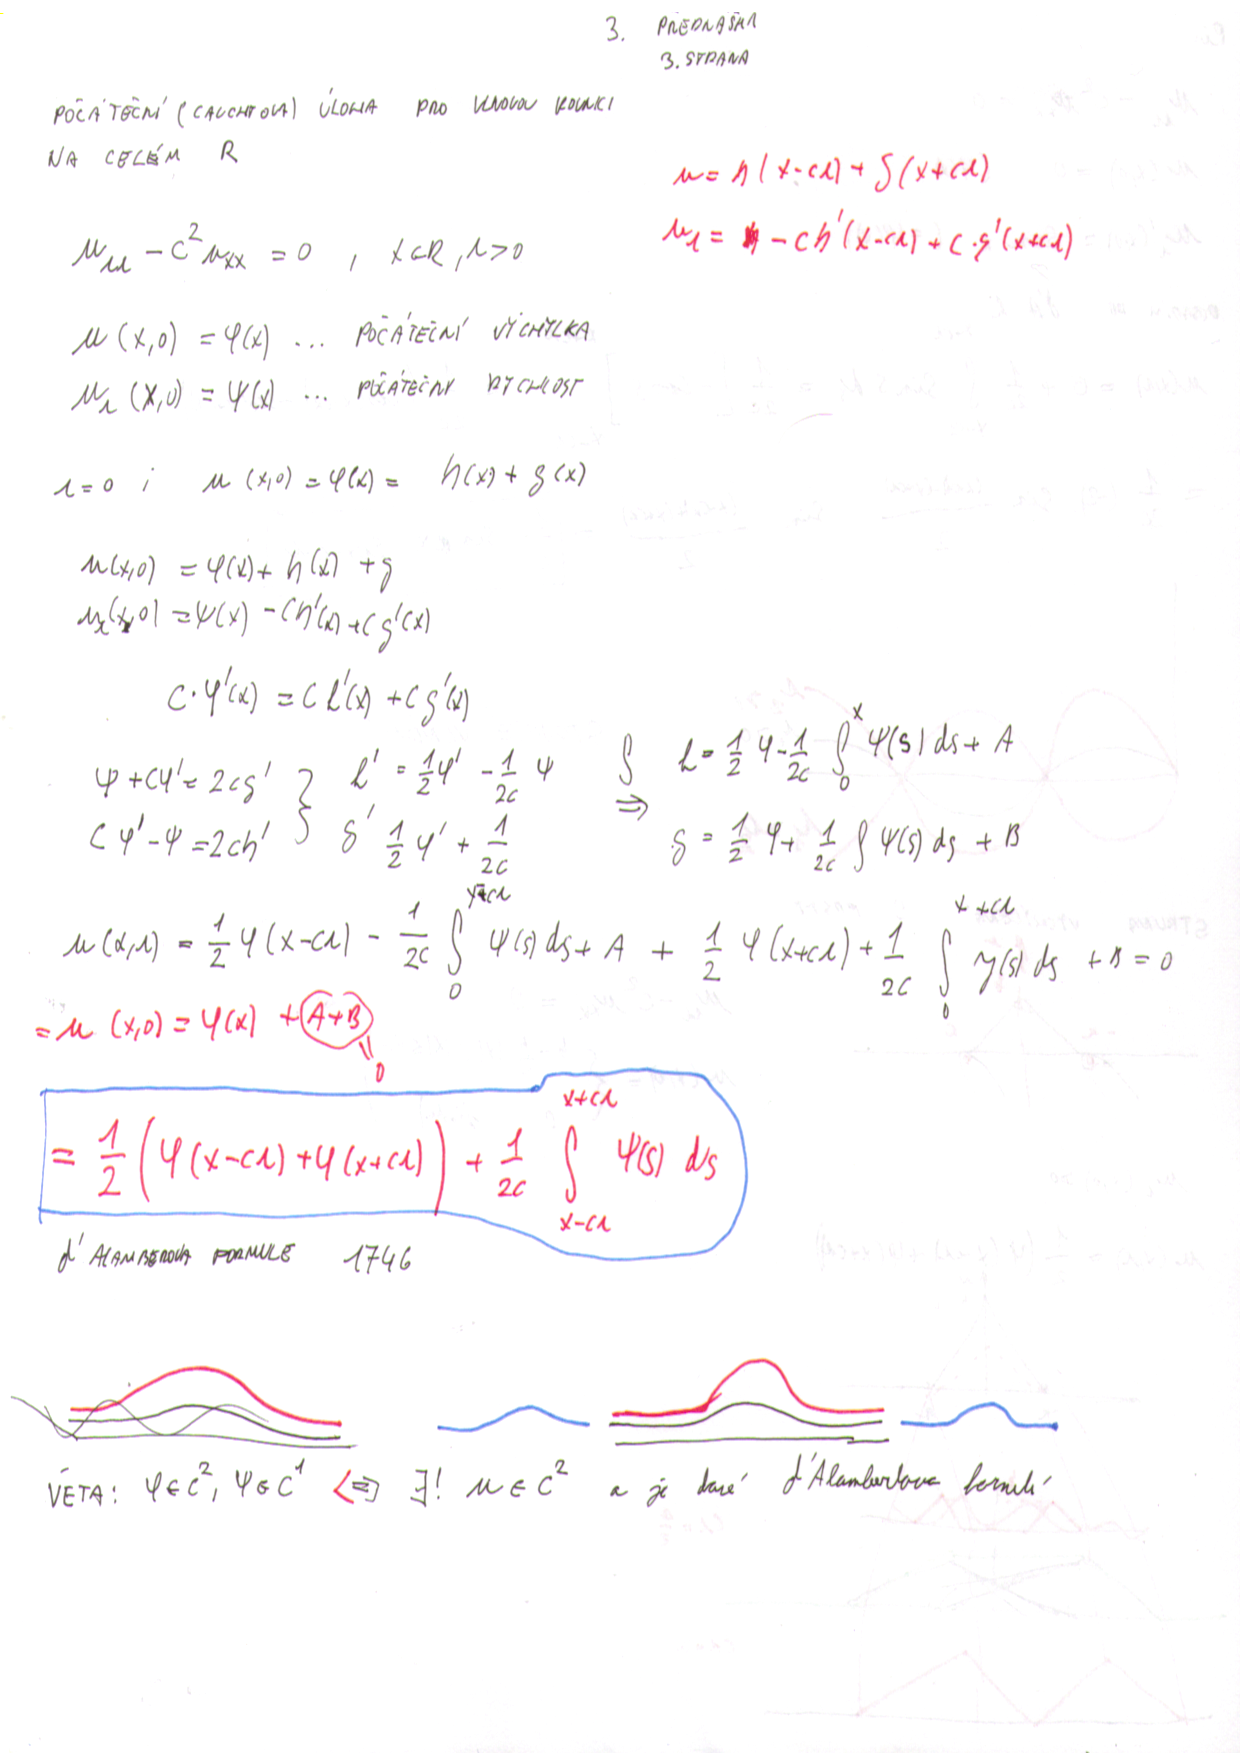 3. PŘEDNÁŠKA
3. STRANA
POČÁTEČNÍ (CAUCHYOVA) ÚLOHA PRO VLNOVOU ROVNICI
NA CELÉM R
u = h(x-ct) + g(x+ct)
u_t = - ch'(x-ct) + c·g'(x+ct)
u_tt - c² u_xx = 0 , x∈R, t>0
u(x,0) = φ(x) ... POČÁTEČNÍ VÝCHYLKA
u_t(x,0) = ψ(x) ... POČÁTEČNÍ RYCHLOST
t=0 : u(x,0) = φ(x) = h(x) + g(x)
u(x,0) = φ(x) + h(x) + g
u_t(x,0) = ψ(x) - ch'(x) + cg'(x)
c·φ'(x) = ch'(x) + cg'(x)
ψ + cφ' = 2cg' } h' = 1/2 φ' - 1/2c ψ ∫ h = 1/2 φ - 1/2c ∫_0^x ψ(s) ds + A
cφ' - ψ = 2ch' g' 1/2 φ' + 1/2c ⇒ g = 1/2 φ + 1/2c ∫ ψ(s) ds + B
u(x,t) = 1/2 φ(x-ct) - 1/2c ∫_0^{x-ct} ψ(s) ds + A + 1/2 φ(x+ct) + 1/2c ∫_0^{x+ct} ψ(s) ds + B = 0
= u(x,0) = φ(x) + (A+B)
= 0
= 1/2 (φ(x-ct) + φ(x+ct)) + 1/2c ∫_{x-ct}^{x+ct} ψ(s) ds
d'ALAMBEROVA FORMULE 1746
VĚTA: φ∈C², ψ∈C¹ <=> ∃! u∈C² a je dané d'Alambertova formulí